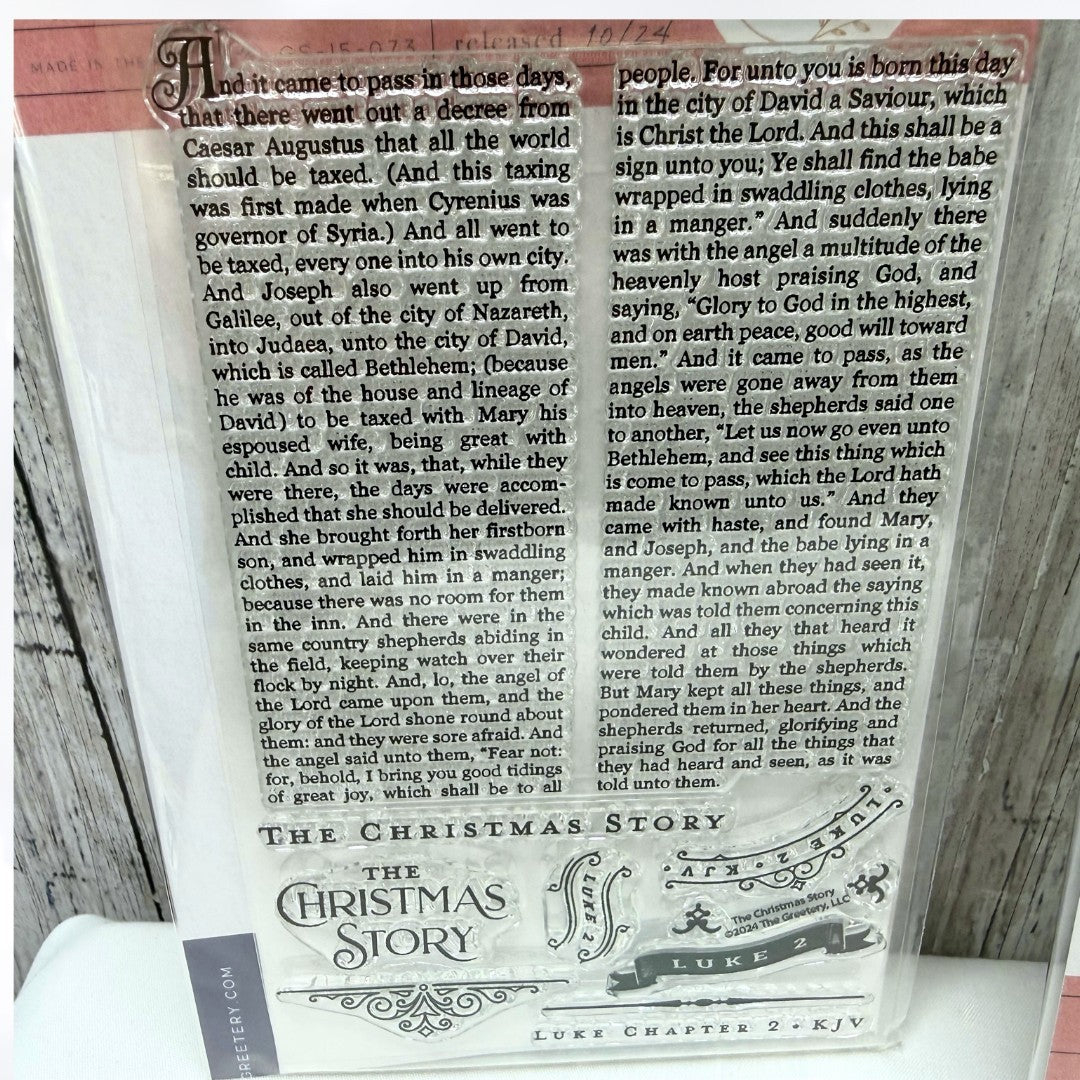 MADE IN THE
GS-15-073 released 10/24
And it came to pass in those days,
that there went out a decree from
Caesar Augustus that all the world
should be taxed. (And this taxing
was first made when Cyrenius was
governor of Syria.) And all went to
be taxed, every one into his own city.
And Joseph also went up from
Galilee, out of the city of Nazareth,
into Judaea, unto the city of David,
which is called Bethlehem; (because
he was of the house and lineage of
David) to be taxed with Mary his
espoused wife, being great with
child. And so it was, that, while they
were there, the days were accom-
plished that she should be delivered.
And she brought forth her firstborn
son, and wrapped him in swaddling
clothes, and laid him in a manger;
because there was no room for them
in the inn. And there were in the
same country shepherds abiding in
the field, keeping watch over their
flock by night. And, lo, the angel of
the Lord came upon them, and the
glory of the Lord shone round about
them: and they were sore afraid. And
the angel said unto them, “Fear not:
for, behold, I bring you good tidings
of great joy, which shall be to all
people. For unto you is born this day
in the city of David a Saviour, which
is Christ the Lord. And this shall be a
sign unto you; Ye shall find the babe
wrapped in swaddling clothes, lying
in a manger.” And suddenly there
was with the angel a multitude of the
heavenly host praising God, and
saying, “Glory to God in the highest,
and on earth peace, good will toward
men.” And it came to pass, as the
angels were gone away from them
into heaven, the shepherds said one
to another, “Let us now go even unto
Bethlehem, and see this thing which
is come to pass, which the Lord hath
made known unto us.” And they
came with haste, and found Mary,
and Joseph, and the babe lying in a
manger. And when they had seen it,
they made known abroad the saying
which was told them concerning this
child. And all they that heard it
wondered at those things which
were told them by the shepherds.
But Mary kept all these things, and
pondered them in her heart. And the
shepherds returned, glorifying and
praising God for all the things that
they had heard and seen, as it was
told unto them.
THE CHRISTMAS STORY
THE
CHRISTMAS
STORY
LUKE 2
LUKE 2 • KJV
The Christmas Story
©2024 The Greetery, LLC
LUKE 2
LUKE CHAPTER 2 • KJV
GREETERY.COM